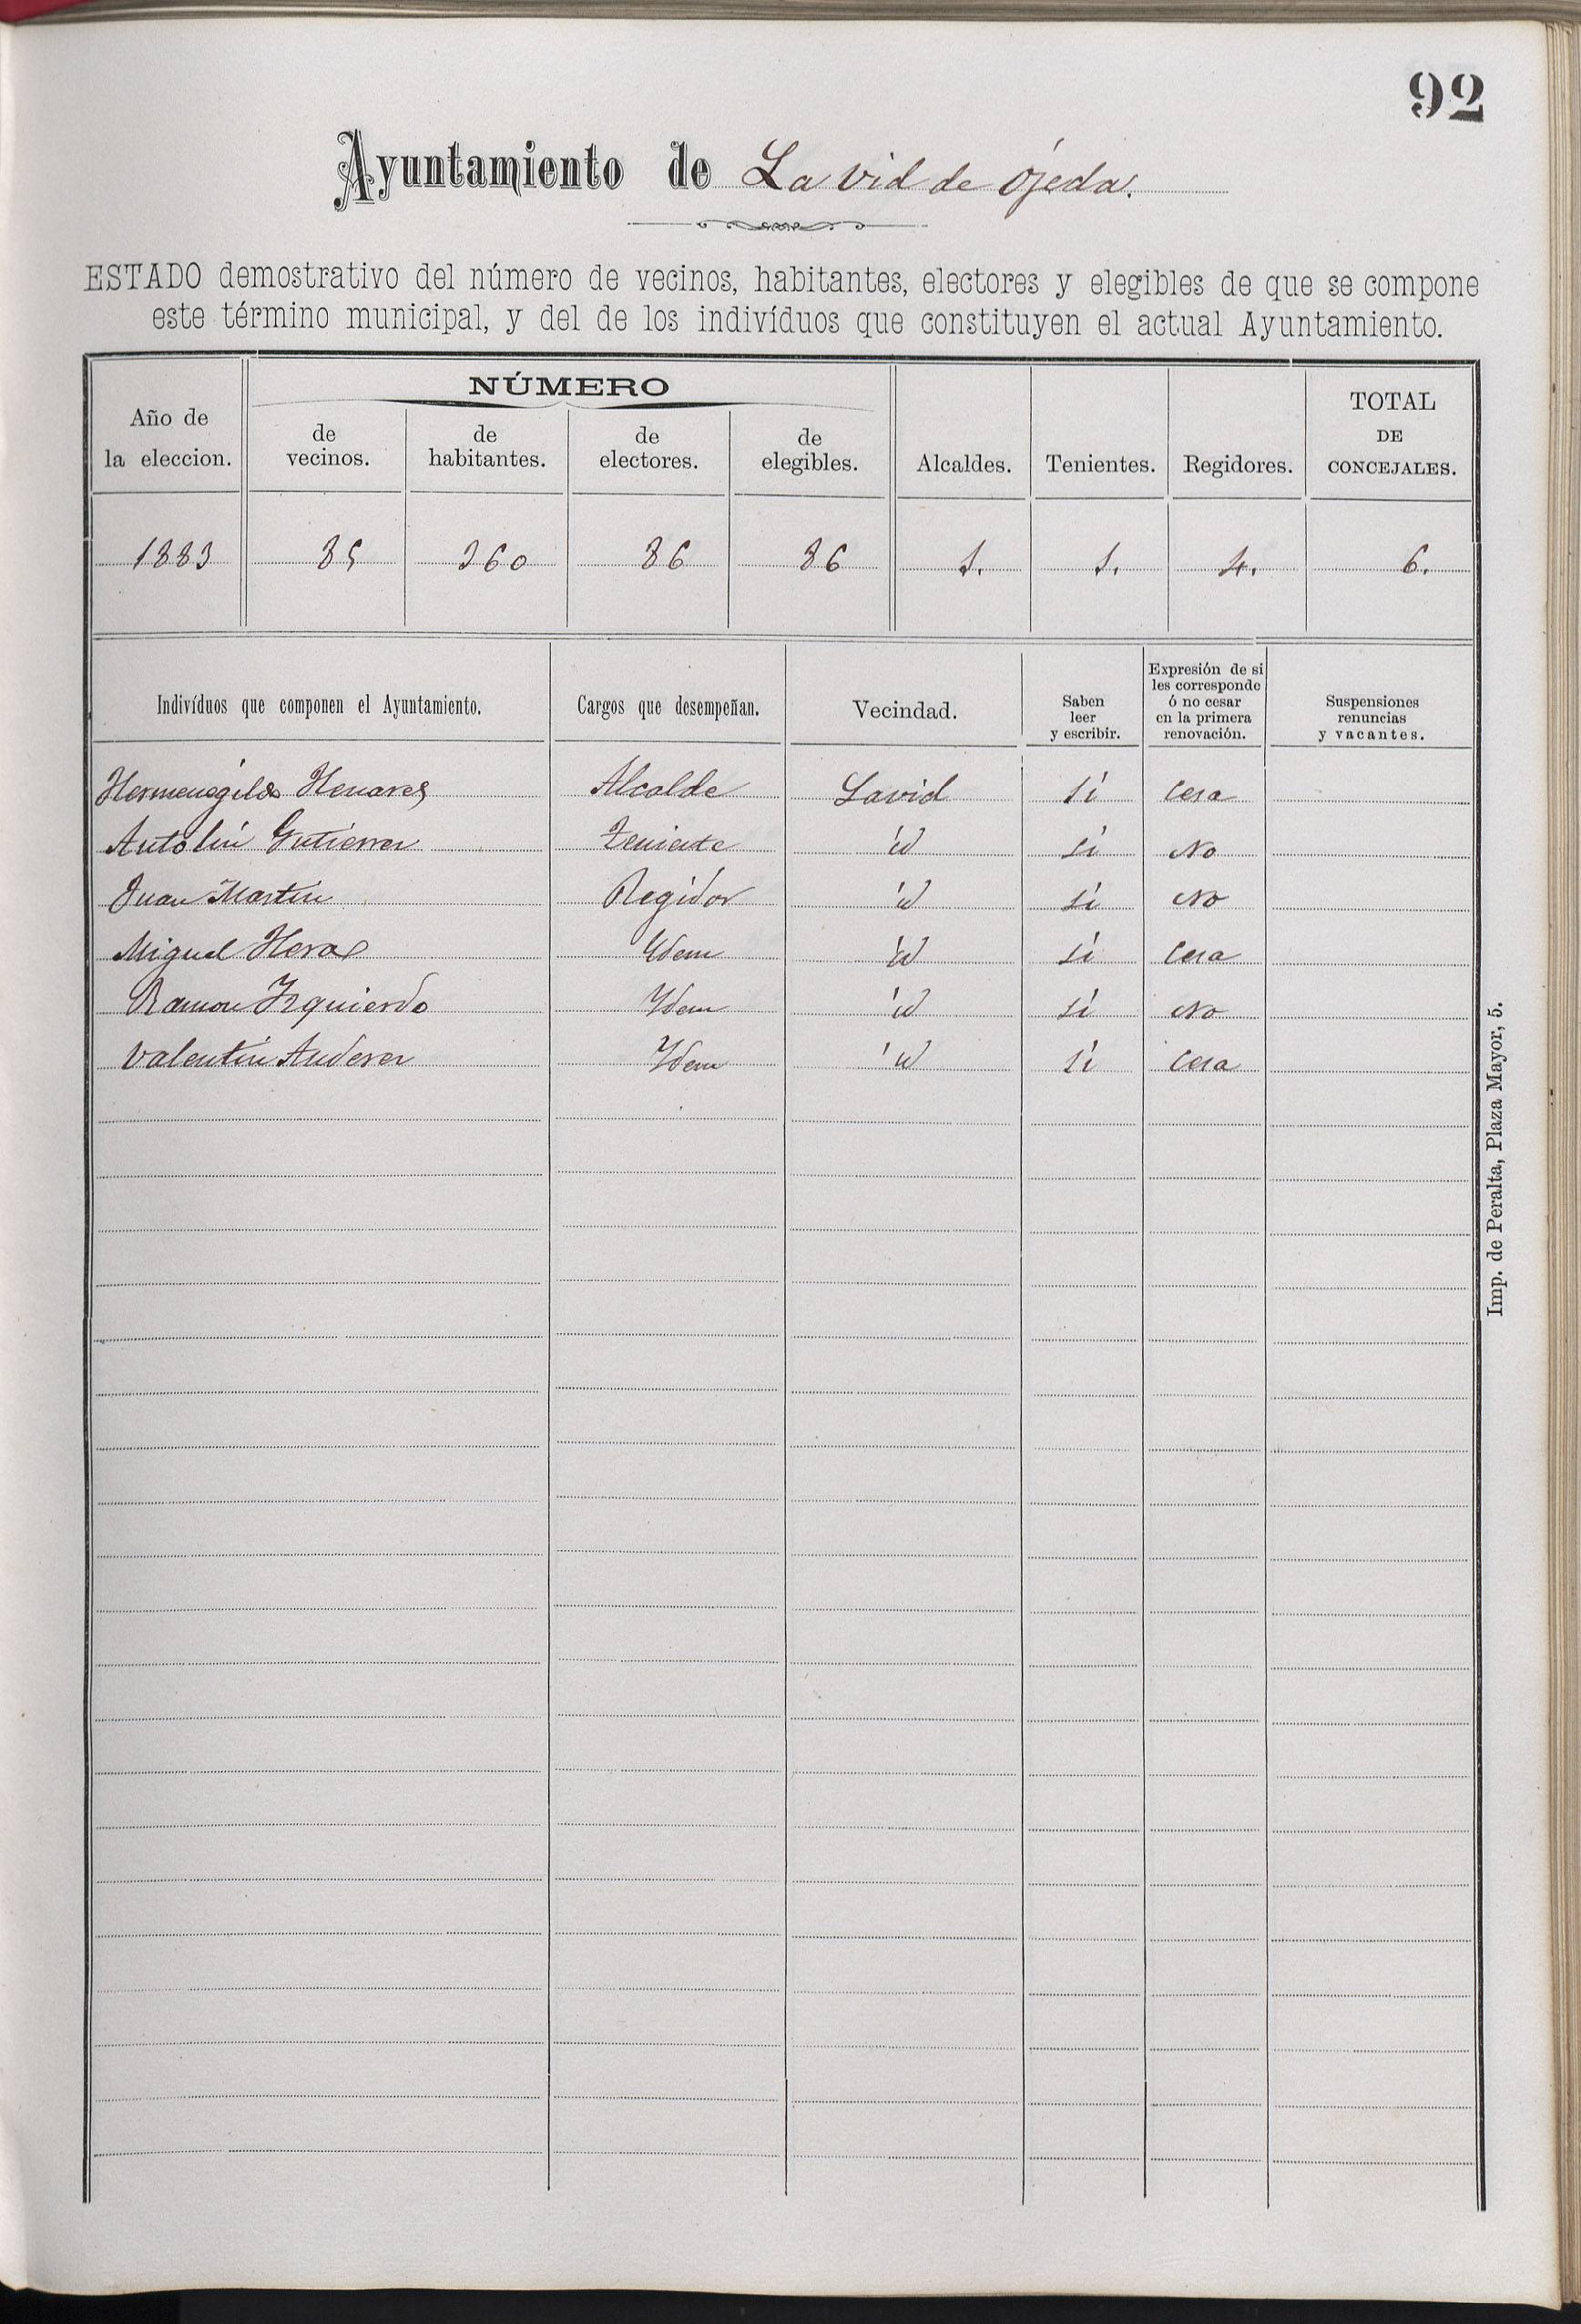 92
Ayuntamiento de La vid de Ojeda.
ESTADO demostrativo del número de vecinos, habitantes, electores y elegibles de que se compone
este término municipal, y del de los indivíduos que constituyen el actual Ayuntamiento.
Año de la eleccion. NÚMERO de vecinos. de habitantes. de electores. de elegibles. Alcaldes. Tenientes. Regidores. TOTAL DE CONCEJALES.
1883 85 360 86 86 1. 1. 4. 6.
Indivíduos que componen el Ayuntamiento. Cargos que desempeñan. Vecindad. Saben leer y escribir. Expresión de si les corresponde ó no cesar en la primera renovación. Suspensiones renuncias y vacantes.
Hermenegildo Henares Alcalde Lavid si cesa
Antolin Gutierrez Teniente id si No
Juan Martin Regidor id si No
Miguel Heras Ydem id si cesa
Ramon Izquierdo Ydem id si No
Valentin Anderez Ydem id si cesa
Imp. de Peralta, Plaza Mayor, 5.